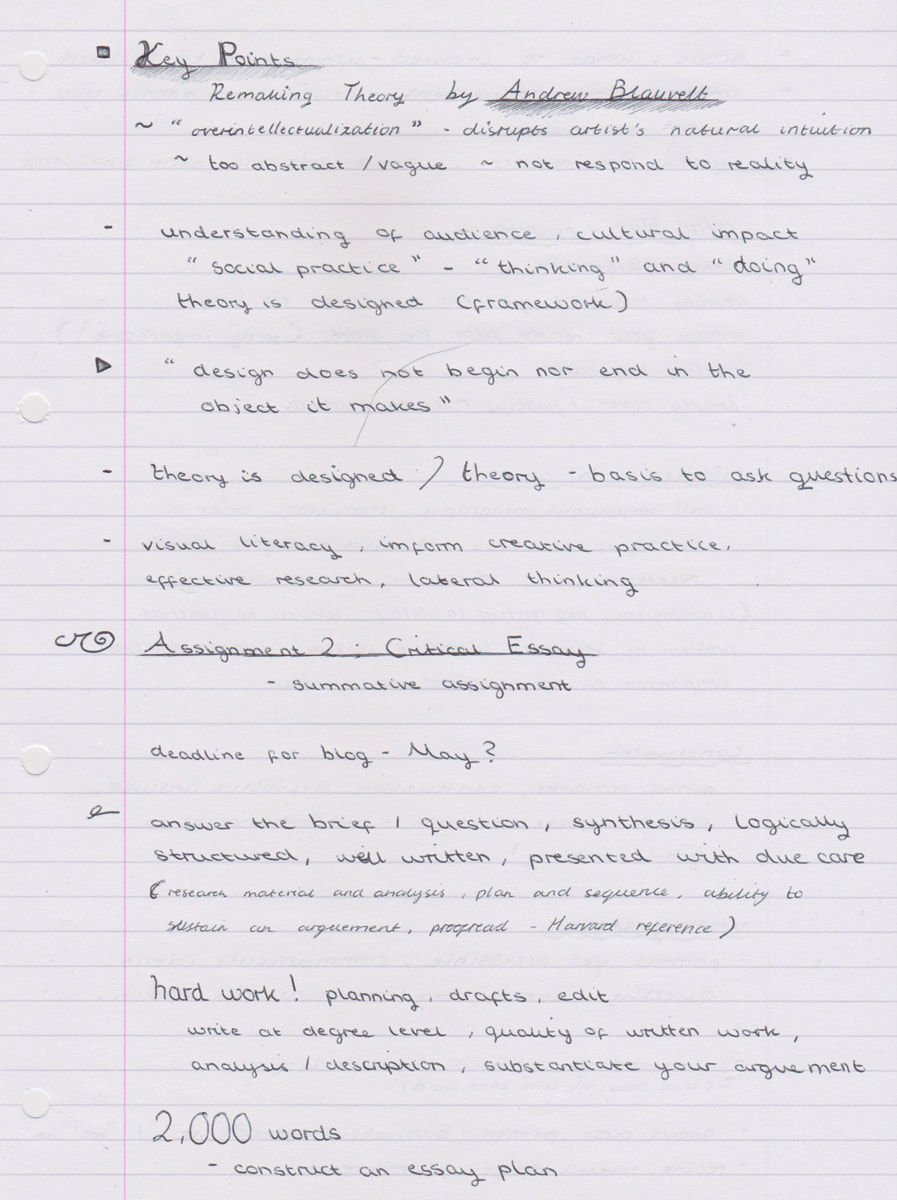 Key Points
Remaking Theory by Andrew Blauvelt
~ "overintellectualization" - disrupts artist's natural intuition
~ too abstract / vague ~ not respond to reality
- understanding of audience, cultural impact
"social practice" - "thinking" and "doing"
theory is designed (framework)
"design does not begin nor end in the
object it makes"
- theory is designed / theory - basis to ask questions
- visual literacy, imform creative practice,
effective research, lateral thinking
Assignment 2 : Critical Essay
- summative assignment
deadline for blog - May?
answer the brief / question, synthesis, logically
structured, well written, presented with due care
(research material and analysis, plan and sequence, ability to
sustain an arguement, proofread - Harvard reference)
hard work! planning, drafts, edit
write at degree level, quality of written work,
analysis / description, substantiate your arguement
2,000 words
- construct an essay plan